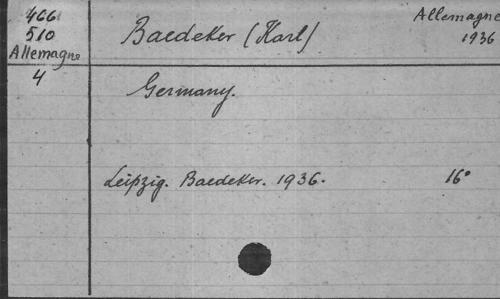 466
510
Allemagne
4
Baedeker (Karl)
Allemagne
1936
Germany.
Leipzig. Baedeker. 1936.
16°